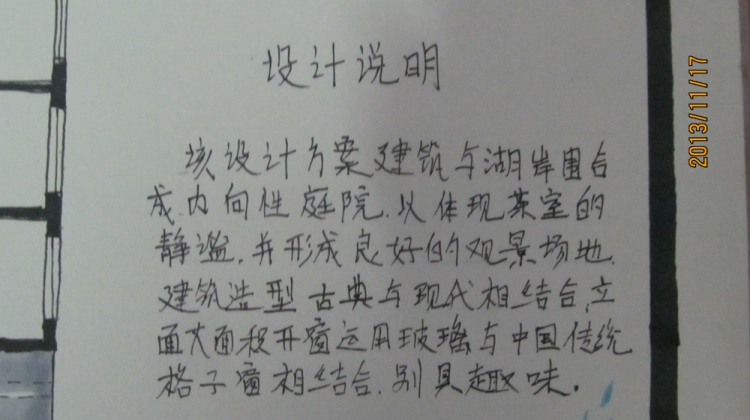 设计说明
该设计方案建筑与湖岸围合
成内向性庭院.以体现茶室的
静谧.并形成良好的观景场地.
建筑造型古典与现代相结合,立
面大面积开窗运用玻璃与中国传统
格子窗相结合.别具趣味.
2013/11/17